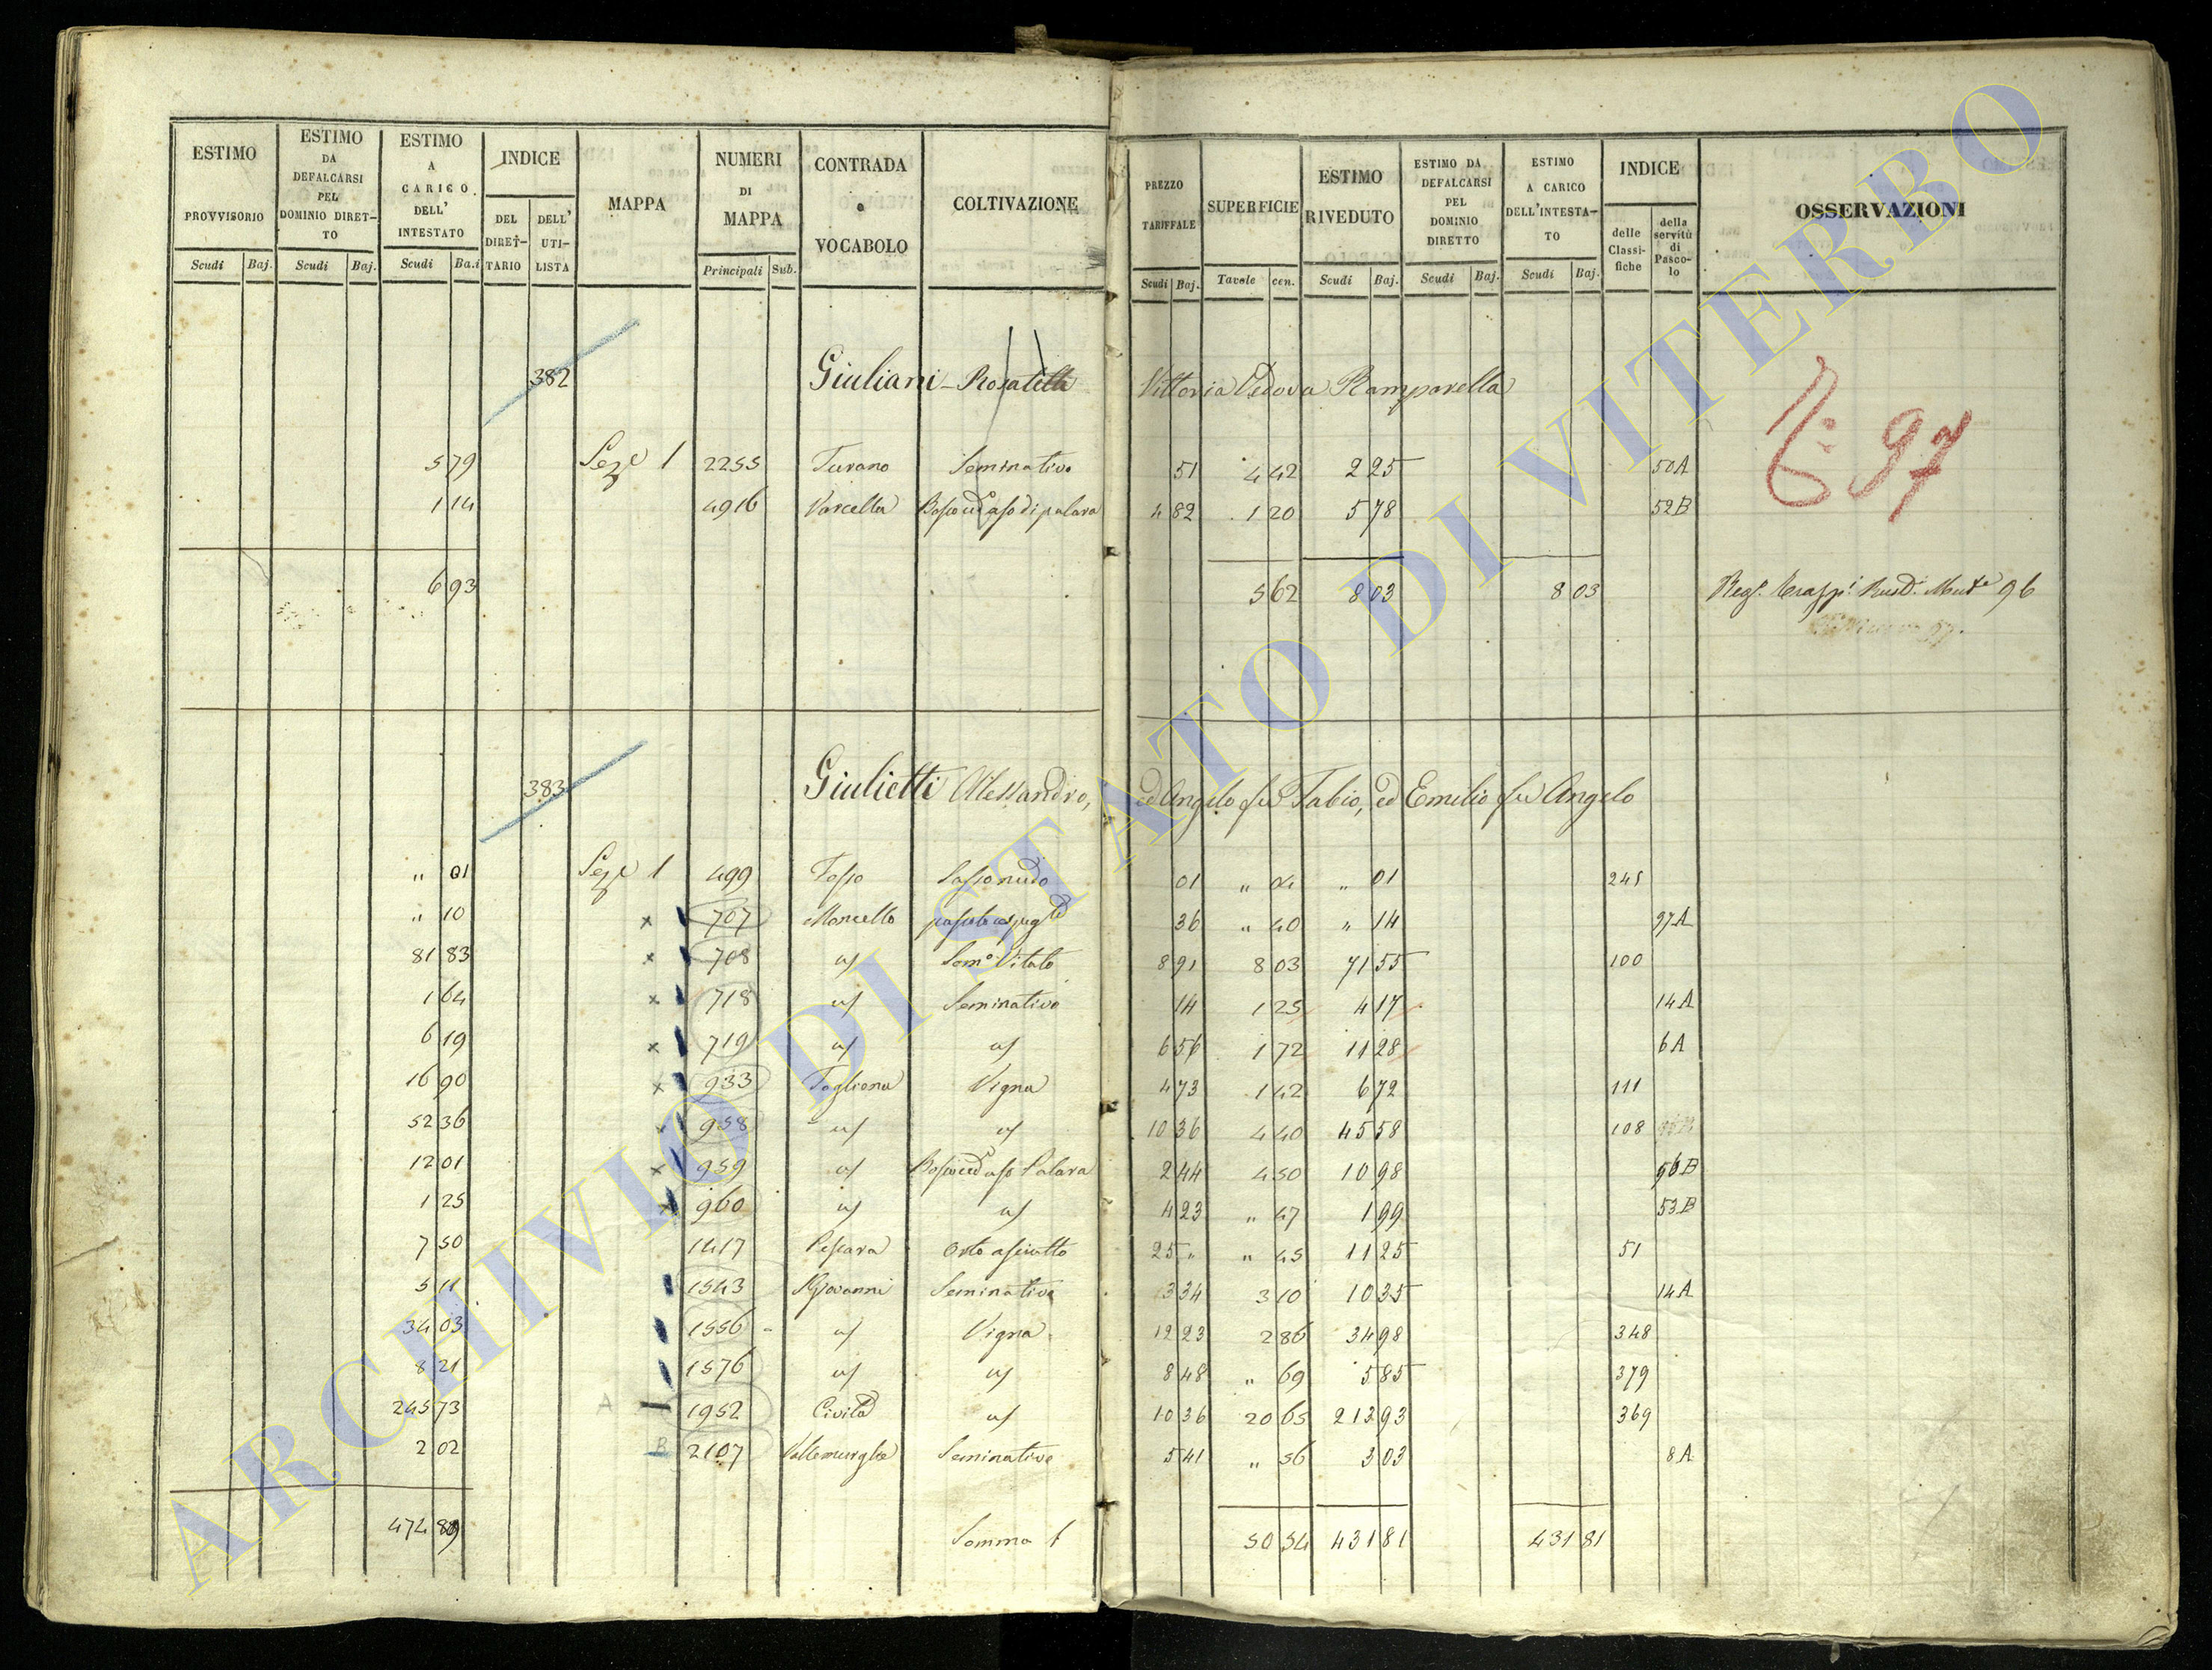 ESTIMO PROVVISORIO Scudi Baj.
ESTIMO DA DEFALCARSI PEL DOMINIO DIRET-TO Scudi Baj.
ESTIMO A CARICO DELL' INTESTATO Scudi Ba.i
INDICE DEL DIRET-TARIO DELL' UTI-LISTA
MAPPA
NUMERI DI MAPPA Principali Sub.
CONTRADA o VOCABOLO
COLTIVAZIONE
PREZZO TARIFFALE Scudi Baj.
SUPERFICIE Tavole cen.
ESTIMO RIVEDUTO Scudi Baj.
ESTIMO DA DEFALCARSI PEL DOMINIO DIRETTO Scudi Baj.
ESTIMO A CARICO DELL'INTESTA-TO Scudi Baj.
INDICE delle Classi-fiche della servitù di Pasco-lo
OSSERVAZIONI
382 Giuliani Vittoria Vedova Ramparella
97
5 79 Seze 1 2255 Turano Seminativo 51 4 42 2 25 50A
1 14 4916 Varcella 4 82 1 20 5 78 52B
6 93 5 62 8 03 8 03 96
383 Giulietti Alessandro, ed Angelo fu Fabio, ed Emilio fu Angelo
" 01 Seze 1 499 Fosso Sasso nudo 01 " " 01 245
" 10 x 707 Morcello 36 " 40 " 14 97A
81 83 x 708 a/ Sem.o Vitato 8 91 8 03 71 55 100
1 64 x 718 a/ Seminativo 14 1 25 4 17 14A
6 19 x 719 a/ a/ 6 56 1 72 11 28 6A
16 90 x 933 Fogliena Vigna 4 73 1 42 6 72 111
52 36 x 958 a/ a/ 10 36 4 40 45 58 108
12 01 x 959 a/ 2 44 4 50 10 98 56B
1 25 x 960 a/ a/ 4 23 " 47 1 99 53B
7 50 1417 Pescara Orto asciutto 25 " " 45 11 25 51
5 11 1543 S Giovanni Seminativo 3 34 3 10 10 35 14A
34 03 1556 a/ Vigna 12 23 2 86 34 98 348
8 21 1576 a/ a/ 8 48 " 69 5 85 379
245 73 A 1952 Civita a/ 10 36 20 65 213 93 369
2 02 B 2107 Seminativo 5 41 " 56 3 03 8A
474 89 Somma 50 54 431 81 431 81
ARCHIVIO DI STATO DI VITERBO